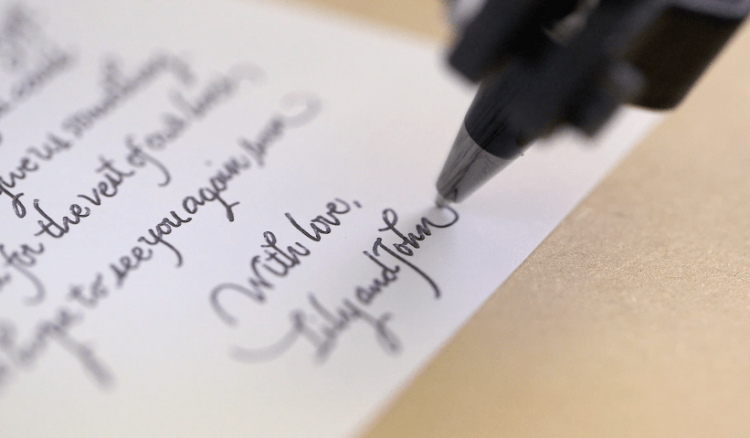 give us something
for the rest of our lives.
hope to see you again soon
With love,
Lily and John